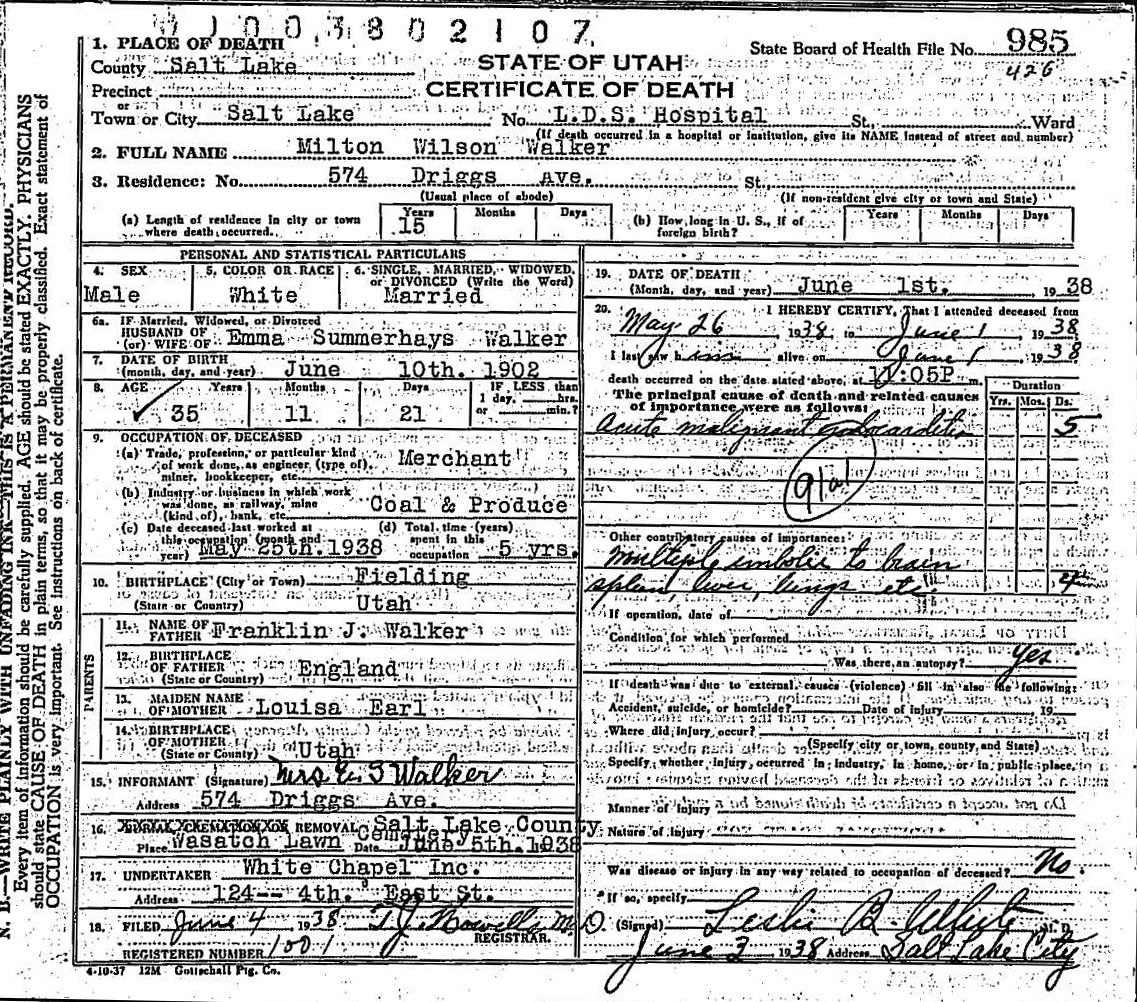 W 1 0 0 3 8 0 2 1 0 7
1. PLACE OF DEATH
State Board of Health File No. 985
426
County Salt Lake
STATE OF UTAH
Precinct
CERTIFICATE OF DEATH
or
Town or City Salt Lake No. L.D.S. Hospital St., Ward
(If death occurred in a hospital or institution, give its NAME instead of street and number)
2. FULL NAME Milton Wilson Walker
3. Residence: No. 574 Driggs Ave. St.
(Usual place of abode) (If non-resident give city or town and State)
(a) Length of residence in city or town where death occurred. Years 15 Months Days
(b) How long in U. S., if of foreign birth? Years Months Days
PERSONAL AND STATISTICAL PARTICULARS
4. SEX Male
5. COLOR OR RACE White
6. SINGLE, MARRIED, WIDOWED, or DIVORCED (Write the Word) Married
6a. IF Married, Widowed, or Divorced
HUSBAND OF
(or) WIFE OF Emma Summerhays Walker
7. DATE OF BIRTH
(month, day, and year) June 10th. 1902
8. AGE Years Months Days IF LESS than
1 day, hrs.
or min.?
35 11 21
9. OCCUPATION OF DECEASED
(a) Trade, profession, or particular kind
of work done, as engineer, (type of), Merchant
miner, bookkeeper, etc.
(b) Industry or business in which work
was done, as railway, mine Coal & Produce
(kind of), bank, etc.
(c) Date deceased last worked at
this occupation (month and
year) May 25th.1938
(d) Total time (years)
spent in this
occupation 5 yrs.
10. BIRTHPLACE (City or Town) Fielding
(State or Country) Utah
PARENTS
11. NAME OF
FATHER Franklin J. Walker
12. BIRTHPLACE
OF FATHER England
(State or Country)
13. MAIDEN NAME
OF MOTHER Louisa Earl
14. BIRTHPLACE
OF MOTHER
(State or County) Utah
15. INFORMANT (Signature) Mrs E S Walker
Address 574 Driggs Ave.
16. BURIAL, CREMATION OR REMOVAL Salt Lake County
Cemetery
Place Wasatch Lawn Date June 5th.1938
17. UNDERTAKER White Chapel Inc.
Address 124-- 4th. East St.
18. FILED June 4 1938 T J Howells M.D.
REGISTRAR.
REGISTERED NUMBER 1001
4-10-37 12M Gottschall Ptg. Co.
19. DATE OF DEATH
(Month, day, and year) June 1st. 1938
20. I HEREBY CERTIFY, That I attended deceased from
May 26 1938 to June 1 1938
I last saw him alive on June 1 1938
death occurred on the date stated above, at :05P m.
The principal cause of death and related causes
of importance were as follows:
Duration
Yrs. Mos. Ds.
Acute malignant endocarditis 5
91a1
Other contributory causes of importance:
Multiple embolie to brain
spleen, liver, lungs etc. 4
If operation, date of
Condition for which performed
Was there an autopsy? Yes
If death was due to external causes (violence) fill in also the following:
Accident, suicide, or homicide? Date of injury 19
Where did injury occur?
(Specify city or town, county, and State)
Specify whether injury occurred in industry, in home, or in public place.
Manner of injury
Nature of injury
Was disease or injury in any way related to occupation of deceased? No
If so, specify
(Signed) Leslie B White M. D.
June 3 1938 Address Salt Lake City
N. B.—WRITE PLAINLY WITH UNFADING INK—THIS IS A PERMANENT RECORD.
Every item of information should be carefully supplied. AGE should be stated EXACTLY. PHYSICIANS
should state CAUSE OF DEATH in plain terms, so that it may be properly classified. Exact statement of
OCCUPATION is very important. See instructions on back of certificate.